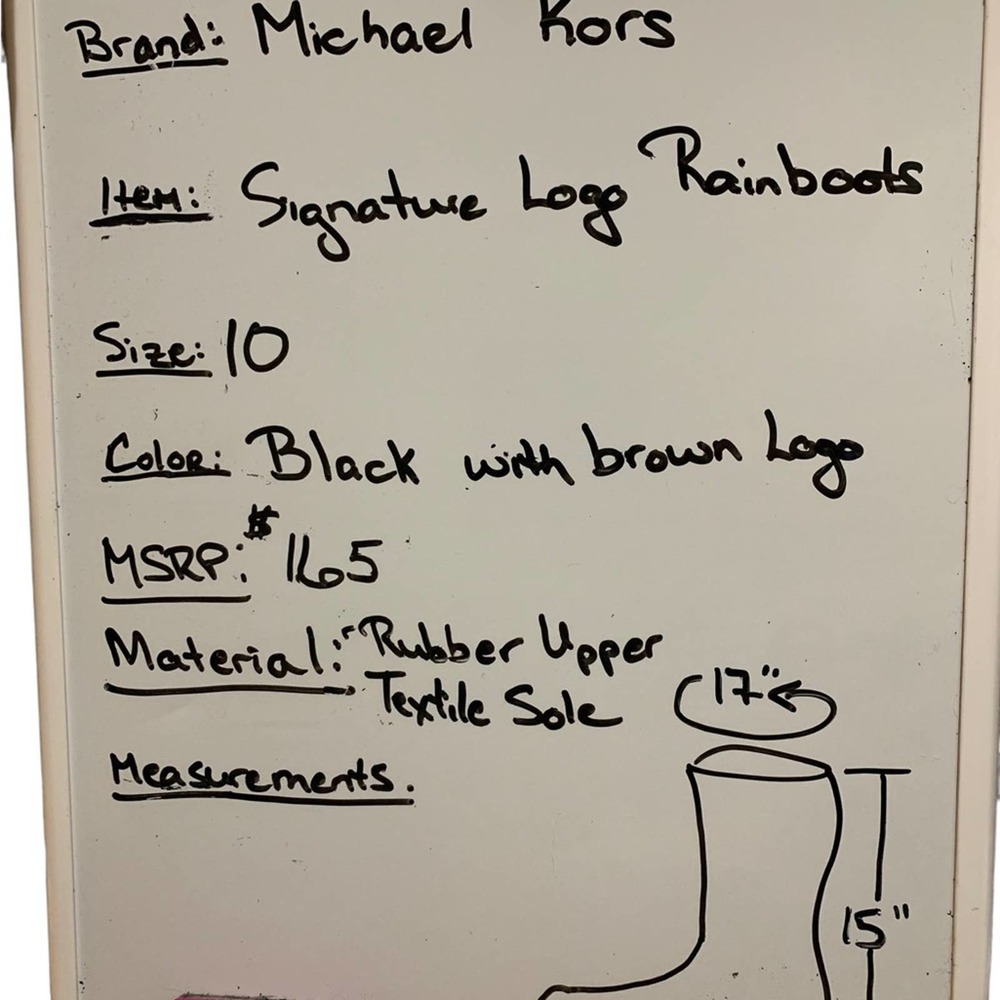 Brand: Michael Kors
Item: Signature Logo Rainboots
Size: 10
Color: Black with brown Logo
MSRP: $165
Material: Rubber Upper
Textile Sole
17"
Measurements.
15"